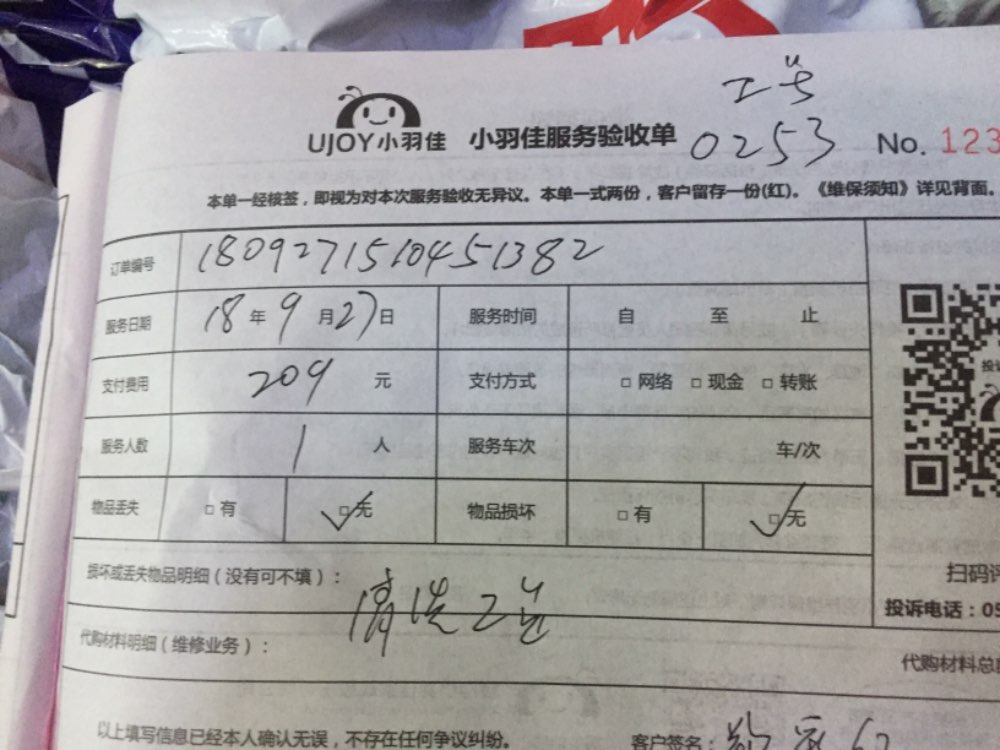 工号
UJOY小羽佳 小羽佳服务验收单 0253 No. 123
本单一经核签，即视为对本次服务验收无异议。本单一式两份，客户留存一份(红)。《维保须知》详见背面。
订单编号 1809271510451382
服务日期 18年9月27日 服务时间 自 至 止
支付费用 209 元 支付方式 □网络 □现金 □转账
服务人数 1 人 服务车次 车/次
物品丢失 □有 □无 物品损坏 □有 □无
损坏或丢失物品明细（没有可不填）：
扫码评
投诉电话：05
清洗
代购材料明细（维修业务）：
代购材料总
以上填写信息已经本人确认无误，不存在任何争议纠纷。
客户签名：